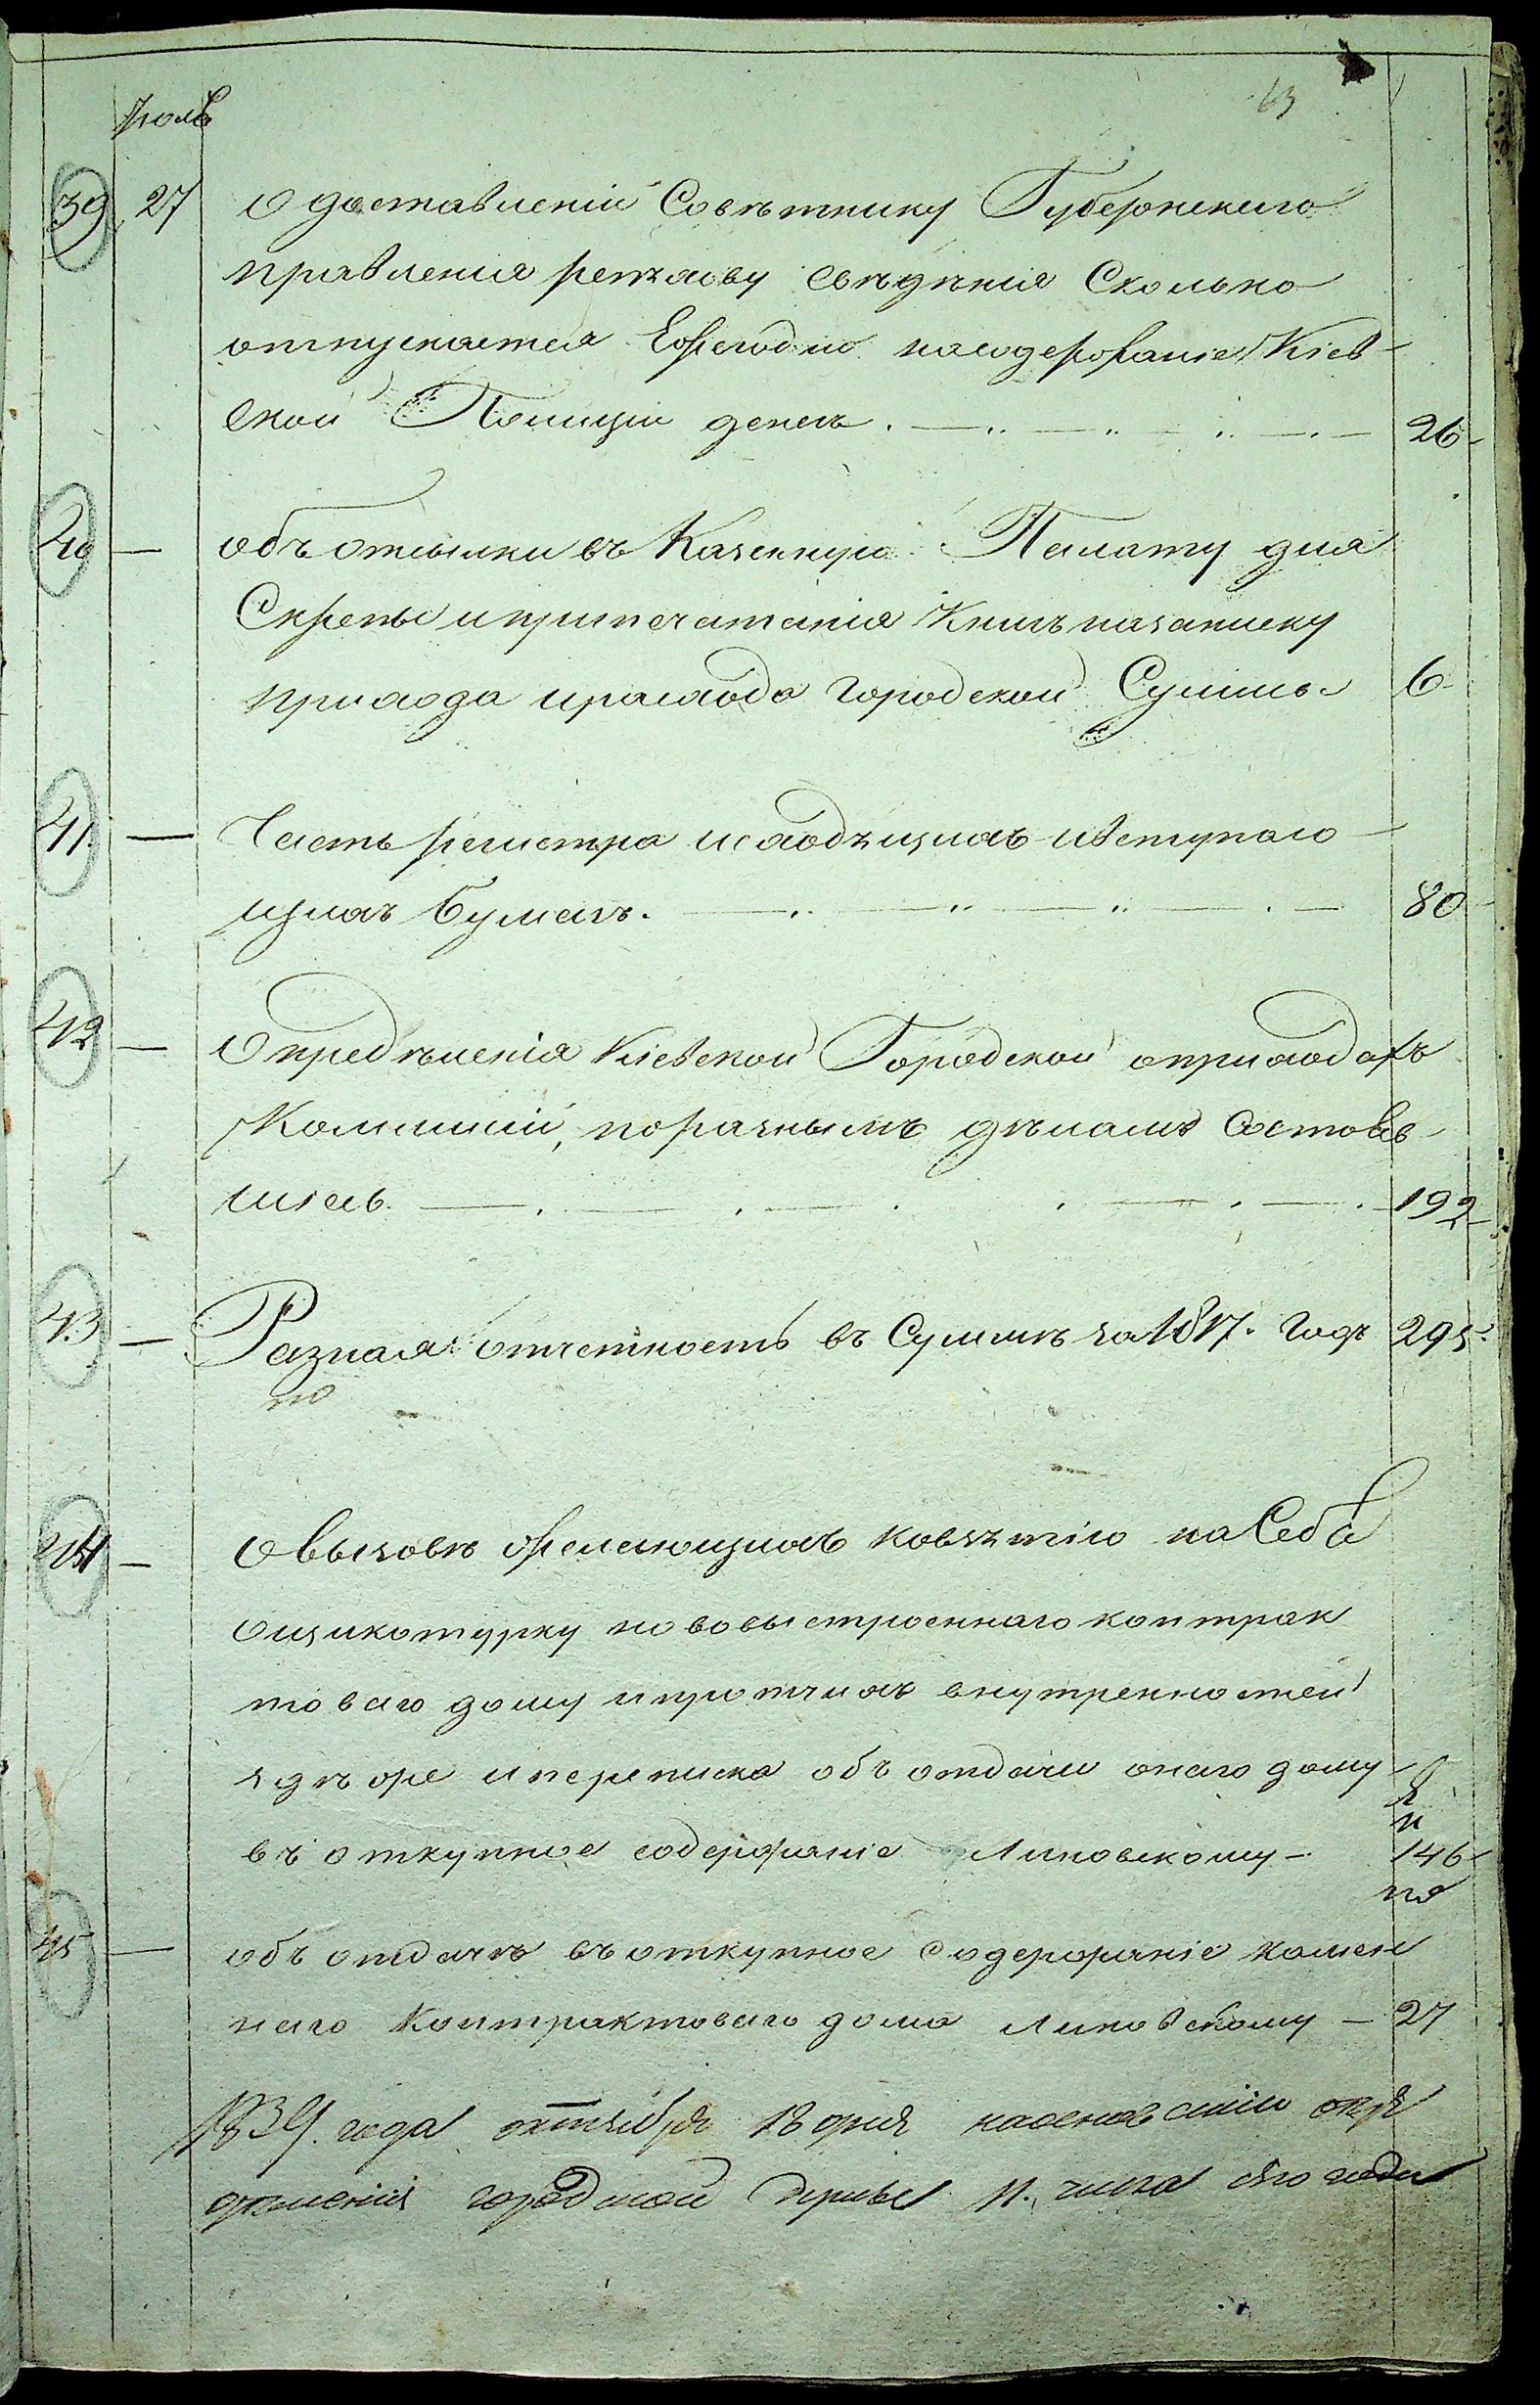 Іюль
63
39 27 О доставленіи Совѣтнику Губернскаго
правленія свѣдѣнія Сколько
отпускается Ежегодно насодержаніе Кіев-
ской Полиціи денегъ. 26
40 — объ отсылки въ Казенную Палату для
Скрепы и припечатанія Книгъ назаписку
прихода ирасхода городской Суммы 6
41. — Часть регистра исходящихъ ивступаю-
щихъ бумагъ. 80
42 — Опредѣленія Кіевской Городской оприходахъ
Комиссіи, поразнымъ дѣламъ Состояв-
шіесь 192
43 — Разная отчетность въ Суммѣ за 1817. годъ 295.
44 — О вызовѣ желающихъ ковзятію на Себя
ощикотурку нововыстроеннаго контрак
товаго дому ипротчихъ внутренностей
здѣже ипереписка объ отдачи онаго дому
въ откупное содержаніе Липовскому — 146
45 — объ отдачѣ въ откупное Содержаніе камен
наго Контрактоваго дома Липовскому — 27
1839. года октября 18 дня наосновании опре
дѣленія городской Думы 11. числа сего года